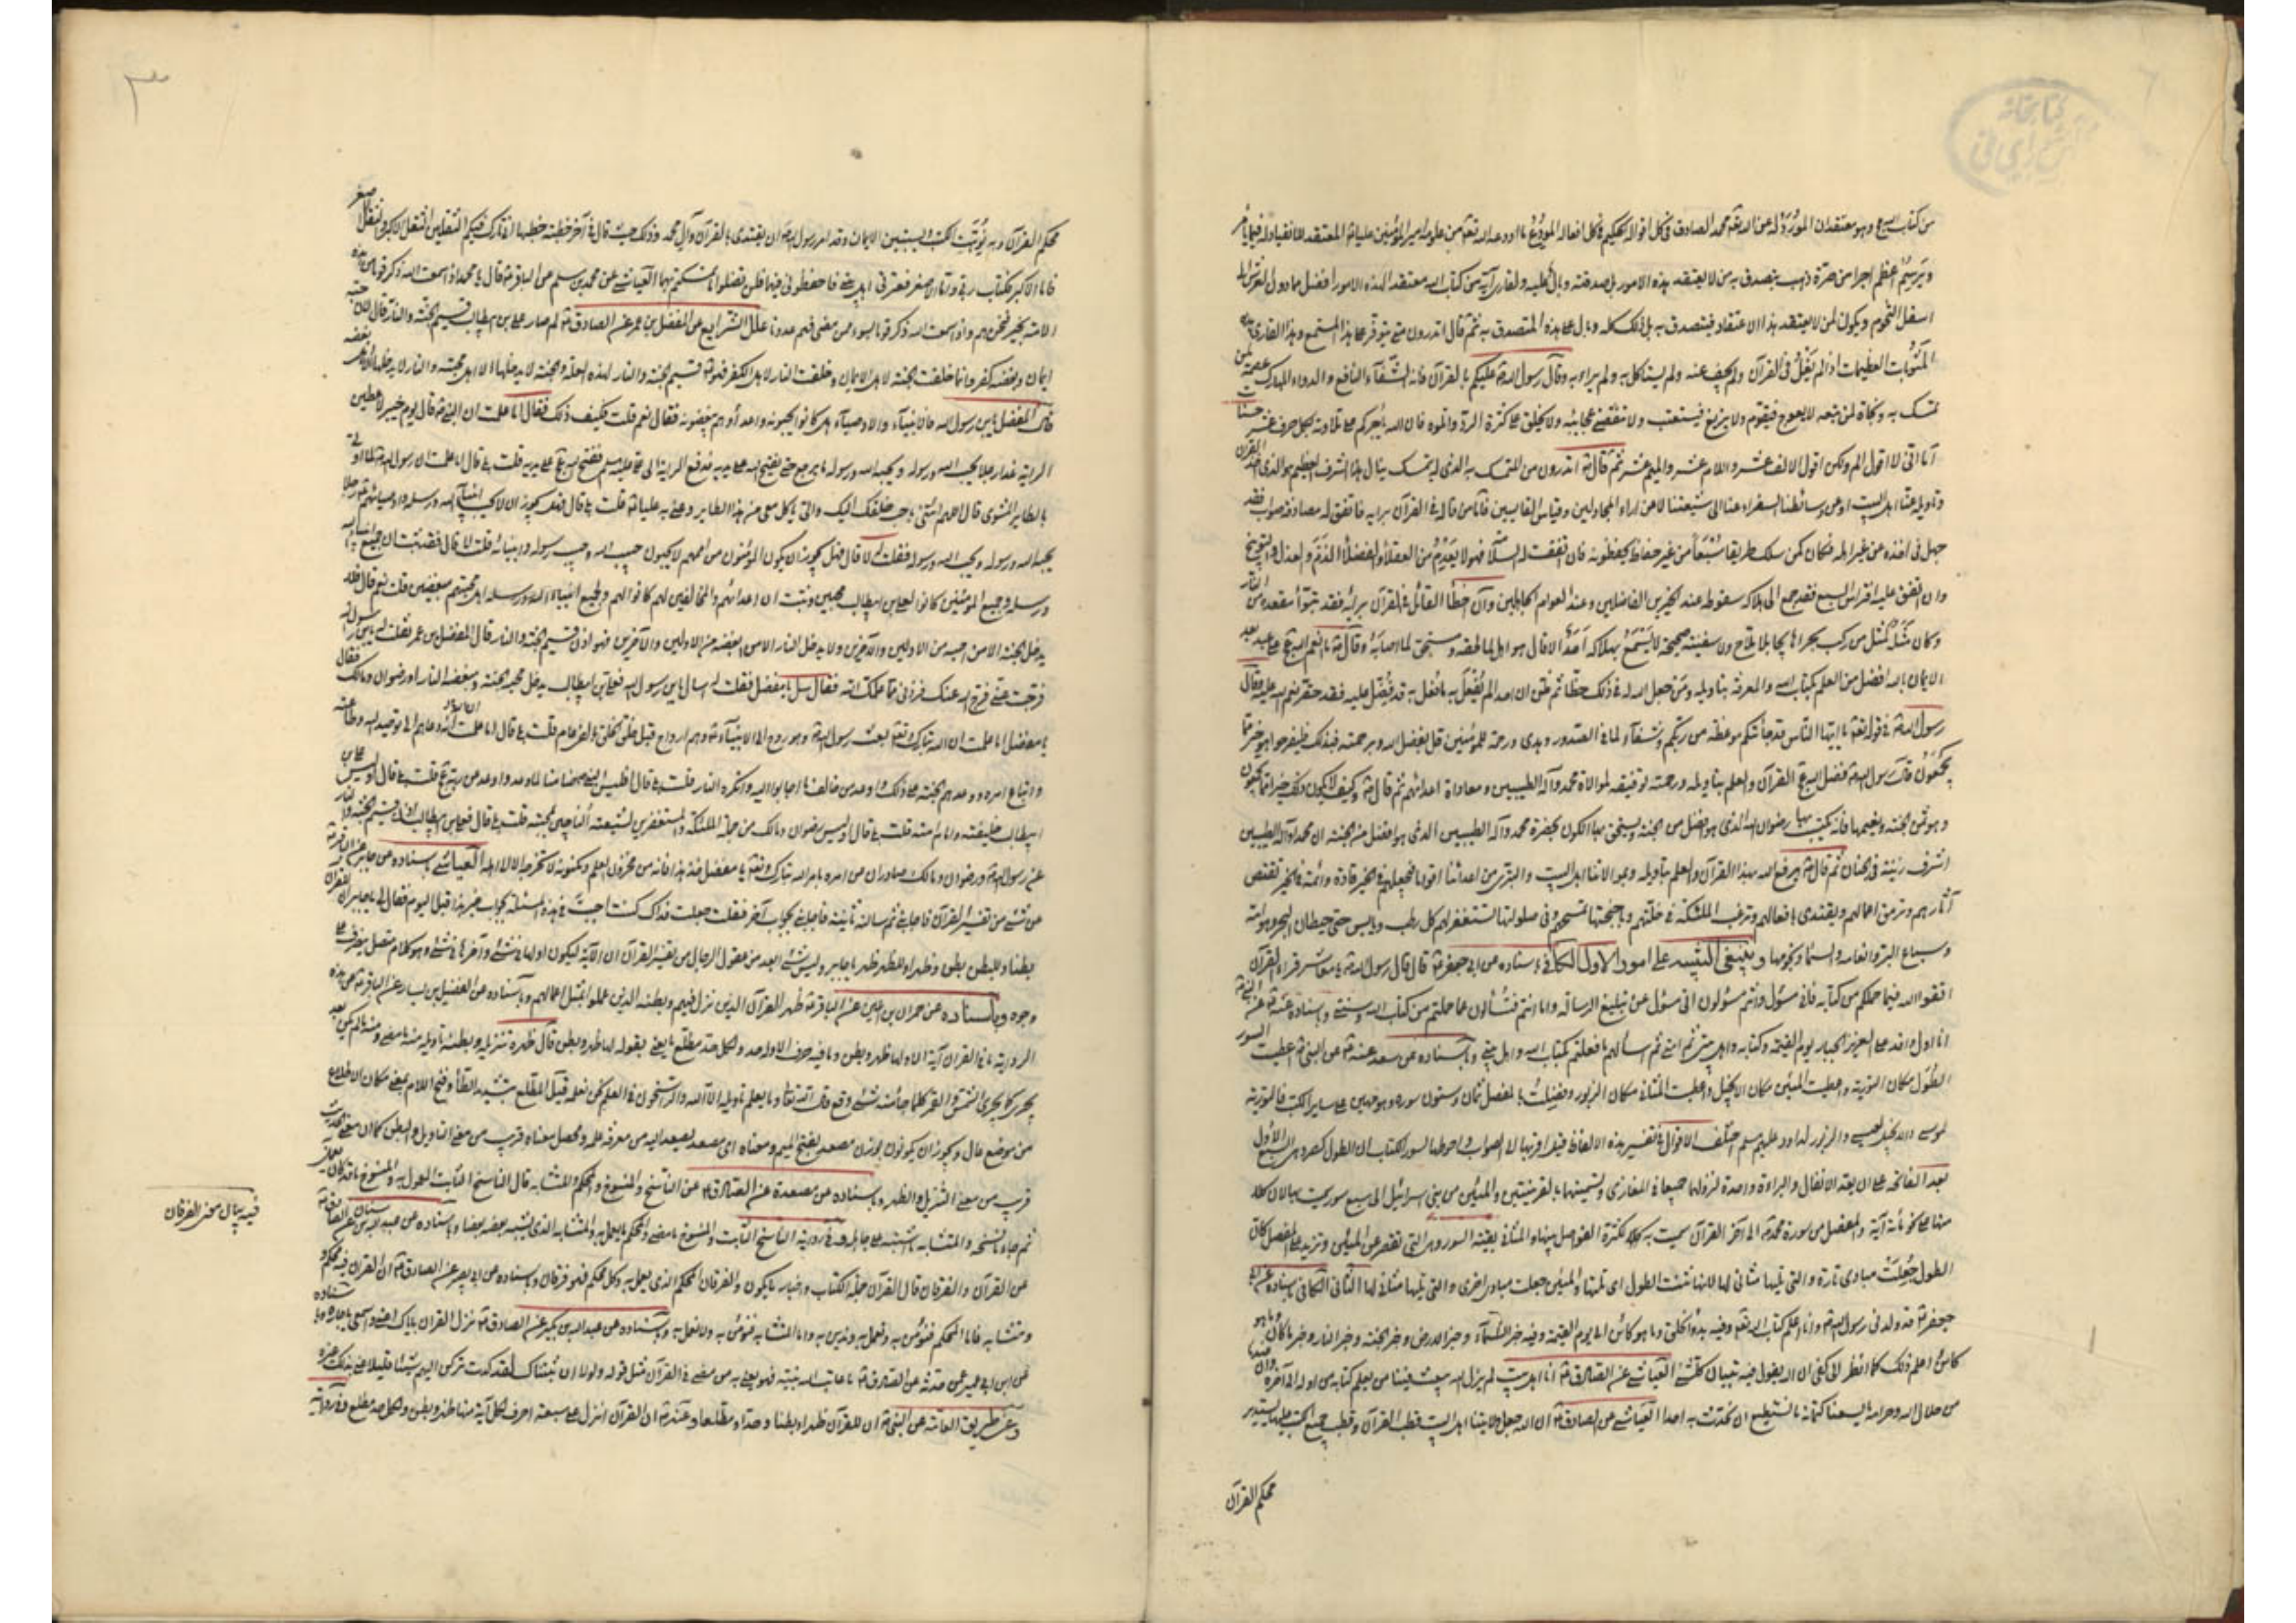 من كتاب الله وهو معتقد ان المورد له عن الله تعالى محمد الصادق في كل اقواله الحكيم في كل افعاله المودع ما اودعه الله تعالى من علومه امير المؤمنين عليا المعتقد للانقياد له فيما يأمر
ويرسم اعظم اجرا من ذهب يتصدق به من لا يعتقد هذه الامور بل صدقته وبال عليه ولقارى آية من كتاب الله معتقدا لهذه الامور افضل مما دون العرش الى
اسفل التخوم ويكون لمن لا يعتقد هذا الاعتقاد فيتصدق به بل ذلك كله وبال على هذا المتصدق به ثم قال اتدرون متى يتوفر على هذا المستمع وهذا القارى هذه
المثوبات العظيمات اذا لم يغل في القرآن ولم يجف عنه ولم يستأكل به ولم يراء به وقال رسول الله عليكم بالقرآن فانه الشفاء النافع والدواء المبارك عصمة لمن
تمسك به ونجاة لمن تبعه لا يعوج فيقوم ولا يزيغ فيستعتب ولا تنقضي عجائبه ولا يخلق على كثرة الرد واتلوه فان الله يأجركم على تلاوته بكل حرف عشر حسنات
اما اني لا اقول الم ولكن اقول الالف عشر واللام عشر والميم عشر ثم قال اتدرون من المتمسك به الذي له بتمسكه ينال هذا الشرف العظيم هو الذي اخذ القرآن
وتأويله عنا اهل البيت او عن وسائطنا السفراء عنا الى شيعتنا لا عن اراء المجادلين وقياس القايسين فاما من قال في القرآن برايه فاتفق له مصادفة صواب فقد
جهل في اخذه عن غير اهله وكان كمن سلك طريقا مسبعا من غير حفاظ يحفظونه فان اتفقت له السلامة فهو لا يعدم من العقلاء والفضلاء الذم والعذل والتوبيخ
وان اتفق عليه افتراس السبع فقد جمع الى هلاكه سقوطه عند الخيرين الفاضلين وعند العوام الجاهلين وان اخطأ القائل في القرآن برايه فقد تبوأ مقعده من النار
وكان مثله كمثل من ركب بحرا هائجا بلا ملاح ولا سفينة صحيحة لا يسمع بهلاكه احد الا قال هو اهل لما لحقه ومستحق لما اصابه وقال ما انعم الله على عبد بعد
الايمان بالله افضل من العلم بكتاب الله والمعرفة بتاويله ومن جعل الله له في ذلك حظا ثم ظن ان احدا لم يفعل به ما فعل به قد فضل عليه فقد حقر نعم الله عليه وقال
رسول الله في قوله تعالى يا ايها الناس قد جاءتكم موعظة من ربكم وشفاء لما في الصدور وهدى ورحمة للمؤمنين قل بفضل الله وبرحمته فبذلك فليفرحوا هو خير مما
يجمعون قال رسول الله فضل الله القرآن والعلم بتاويله ورحمته توفيقه لموالاة محمد وآله الطيبين ومعاداة اعدائهم ثم قال وكيف لا يكون ذلك خيرا مما يجمعون
وهو ثمن الجنة ونعيمها فانه يكتسب بها رضوان الله الذي هو افضل من الجنة ويستحق بها الكون بحضرة محمد وآله الطيبين الذي هو افضل من الجنة ان محمدا وآله الطيبين
اشرف زينة في الجنان ثم قال يرفع الله بهذا القرآن والعلم بتاويله وبموالاتنا اهل البيت والتبري من اعدائنا اقواما فيجعلهم في الخير قادة وائمة في الخير تقتص
آثارهم وترمق اعمالهم ويقتدى بافعالهم وترغب الملئكة في خلتهم وباجنحتها تمسحهم وفي صلوتها تستغفر لهم كل رطب ويابس حتى حيطان البحر وهوامه
وسباع البر وانعامه والسماء ونجومها وينبغي التنبيه على امور الاول الكافي باسناده عن ابي جعفر قال قال رسول الله يا معاشر قراء القرآن
اتقوا الله فيما حملكم من كتابه فاني مسؤل وانتم مسؤلون اني مسئول عن تبليغ الرسالة واما انتم فتسألون عما حملتم من كتاب الله وسنتي وباسناده عنه عن النبي
انا اول وافد على العزيز الجبار يوم القيمة وكتابه واهل بيتي ثم امتي ثم اسألهم ما فعلتم بكتاب الله واهل بيتي وباسناده عن سعد عنه عن النبي اعطيت السور
الطول مكان التورية واعطيت المئين مكان الانجيل واعطيت المثاني مكان الزبور وفضلت بالمفصل ثمان وستون سورة وهو مهيمن على ساير الكتب فالتورية
لموسى والانجيل لعيسى والزبور لداود اختلف الاقوال في تفسير هذه الالفاظ فيها اقربها الى الصواب واحوطها لسور الكتاب ان الطول كصرد هي السبع الاول
بعد الفاتحة على ان يعد الانفال والبراءة واحدة لنزولهما جميعا في المغازي وتسميتهما بالقرينتين والمئين من بني اسرائيل الى سبع سور سميت بها لان كلا
منها على نحو مائة آية والمفصل من سورة محمد الى آخر القرآن سميت به لكثرة الفواصل بينها والمثاني بقية السور وهي التي تقصر عن المئين وتزيد على المفصل كان
الطول جعلت مبادى تارة والتي تليها مثاني لها لانها ثنت الطول اي تلتها والمئين جعلت مبادى اخرى والتي تليها مثاني لها الثاني الكافي باسناده عن ابي
جعفر قد ولدني رسول الله وانا اعلم كتاب الله تعالى وفيه بدؤ الخلق وما هو كائن الى يوم القيمة وفيه خبر السماء وخبر الارض وخبر الجنة وخبر النار وخبر ما كان وما هو
كائن اعلم ذلك كما انظر الى كفي ان الله يقول فيه تبيان كل شئ العياشي عن الصادق انا اهل بيت لم يزل الله يبعث فينا من يعلم كتابه من اوله الى آخره وان عندنا
من حلال الله وحرامه ما يسعنا كتمانه ما نستطيع ان نحدث به احدا العياشي عن الصادق ان الله جعل ولايتنا اهل البيت قطب القرآن وقطب جميع الكتب عليها يستدير
محكم القرآن
محكم القرآن وبه نوهت الكتب ويستبين الايمان وقد امر رسول الله ان يقتدى بالقرآن وآل محمد وذلك حيث قال في آخر خطبة خطبها اني تارك فيكم الثقلين الثقل الاكبر والثقل الاصغر
فاما الاكبر فكتاب ربي واما الاصغر فعترتي اهل بيتي فاحفظوني فيهما فلن تضلوا ما تمسكتم بهما العياشي عن محمد بن مسلم عن الباقر قال يا محمد اذا سمعت الله ذكر قوما من هذه
الامة بخير فنحن هم واذا سمعت الله ذكر قوما بسوء ممن مضى فهم عدونا علل الشرايع عن المفضل بن عمر عن الصادق لم صار علي بن ابيطالب قسيم الجنة والنار قال لان حبه
ايمان وبغضه كفر وانما خلقت الجنة لاهل الايمان وخلقت النار لاهل الكفر فهو قسيم الجنة والنار لهذه العلة والجنة لا يدخلها الا اهل محبته والنار لا يدخلها الا اهل بغضه
قال المفضل يابن رسول الله فالانبياء والاوصياء هل كانوا يحبونه واعداؤهم يبغضونه فقال نعم قلت فكيف ذلك فقال اما علمت ان النبي قال يوم خيبر لاعطين
الراية غدا رجلا يحب الله ورسوله ويحبه الله ورسوله ما يرجع حتى يفتح الله على يديه فدفع الراية الى علي ففتح الله على يديه قلت بلى قال اما علمت ان رسول الله لما اوتي
بالطاير المشوي قال اللهم ائتني باحب خلقك اليك والي ياكل معي من هذا الطاير وعنى به عليا قلت بلى قال فهل يجوز ان لا يحب انبياء الله ورسله واوصيائهم رجلا
يحبه الله ورسوله ويحب الله ورسوله فقلت له لا قال فهل يجوز ان يكون المؤمنون من اممهم لا يحبون حبيب الله وحبيب رسوله وانبيائه قلت لا قال فقد ثبت ان جميع انبياء الله
ورسله وجميع المؤمنين كانوا لعلي بن ابيطالب محبين وثبت ان اعدائهم والمخالفين لهم كانوا لهم ولجميع انبياء الله ورسله اهل محبتهم مبغضين قلت نعم قال فلا
يدخل الجنة الا من احبه من الاولين والآخرين ولا يدخل النار الا من ابغضه من الاولين والآخرين فهو اذن قسيم الجنة والنار قال المفضل بن عمر فقلت له يابن رسول الله
فرجت عني فرج الله عنك فزدني مما علمك الله فقال سل يا مفضل فقلت له اسال يابن رسول الله فعلي بن ابيطالب يدخل محبه الجنة ومبغضه النار او رضوان ومالك فقال
يا مفضل اما علمت ان الله تبارك وتعالى بعث رسول الله وهو روح الى الانبياء وهم ارواح قبل خلق الخلق بالفي عام قلت بلى قال اما علمت انه دعاهم الى توحيد الله وطاعته
واتباع امره ووعدهم الجنة على ذلك واوعد من خالف ما اجابوا اليه وانكره النار قلت بلى قال افليس النبي ضامنا لما وعد واوعد من ربه قلت بلى قال اوليس علي بن
ابيطالب خليفته وامام امته قلت بلى قال اوليس رضوان ومالك من جملة الملئكة والمستغفرين لشيعته الناجين بمحبته قلت بلى قال فعلي بن ابيطالب اذن قسيم الجنة والنار
عن رسول الله ورضوان ومالك صادران عن امره بامر الله تبارك وتعالى يا مفضل خذ هذا فانه من مخزون العلم ومكنونه لا تخرجه الا الى اهله العياشي باسناده عن جابر عن الباقر
عن شئ من تفسير القرآن فاجابني ثم سالته ثانية فاجابني بجواب آخر فقلت جعلت فداك كنت اجبت في هذه المسئلة بجواب غير هذا قبل اليوم فقال لي يا جابر ان للقرآن
بطنا وللبطن بطن وظهرا وللظهر ظهر يا جابر وليس شئ ابعد من عقول الرجال من تفسير القرآن ان الآية ليكون اولها في شئ وآخرها في شئ وهو كلام متصل يتصرف على
وجوه وباسناده عن حمران بن اعين عن الباقر ظهر القرآن الذين نزل فيهم وبطنه الذين عملوا بمثل اعمالهم وباسناده عن الفضيل بن يسار عن الباقر عن هذه
الرواية ما في القرآن آية الا ولها ظهر وبطن وما فيه حرف الا وله حد ولكل حد مطلع ما يعني بقوله لها ظهر وبطن قال ظهره تنزيله وبطنه تاويله منه ما مضى ومنه ما لم يكن بعد
يجري كما يجري الشمس والقمر كلما جاء منه شئ وقع قال الله تعالى وما يعلم تاويله الا الله والراسخون في العلم نحن نعلمه قيل المطلع بتشديد الطاء وفتح اللام بمعنى مكان الاطلاع
من موضع عال ويجوز ان يكون بوزن مصعد بفتح الميم ومعناه اي مصعد يصعد اليه من معرفة علمه ومحصل معناه قريب من معنى التاويل والبطن كما ان معنى الحد
قريب من معنى التنزيل والظهر وباسناده عن مسعدة عن الصادق عن الناسخ والمنسوخ والمحكم والمتشابه قال الناسخ الثابت المعمول به والمنسوخ ما قد كان يعمل
ثم جاء ما نسخه والمتشابه ما اشتبه على جاهله وفي رواية الناسخ الثابت والمنسوخ ما مضى والمحكم ما يعمل به والمتشابه الذي يشبه بعضه بعضا وباسناده عن عبد الله بن سنان عن الصادق
عن القرآن والفرقان قال القرآن جملة الكتاب واخبار ما يكون والفرقان المحكم الذي يعمل به وكل محكم فهو فرقان وباسناده عن ابي بصير عن الصادق ان القرآن فيه محكم
ومتشابه فاما المحكم فنؤمن به ونعمل به وندين به واما المتشابه فنؤمن به ولا نعمل به وباسناده عن عبد الله بن بكير عن الصادق نزل القرآن باياك اعني واسمعي يا جارة وباسناده
عن ابن ابي عمير عمن حدثه عن الصادق ما عاتب الله نبيه فهو يعني به من مضى في القرآن مثل قوله ولولا ان ثبتناك لقد كدت تركن اليهم شيئا قليلا عنى بذلك غيره
وعن طريق العامة عن النبي ان للقرآن ظهرا وبطنا وحدا ومطلعا وعنه ان القرآن انزل على سبعة احرف لكل آية منها ظهر وبطن ولكل حد مطلع وفي رواية
فيه بيان معنى الفرقان
كتابخانه